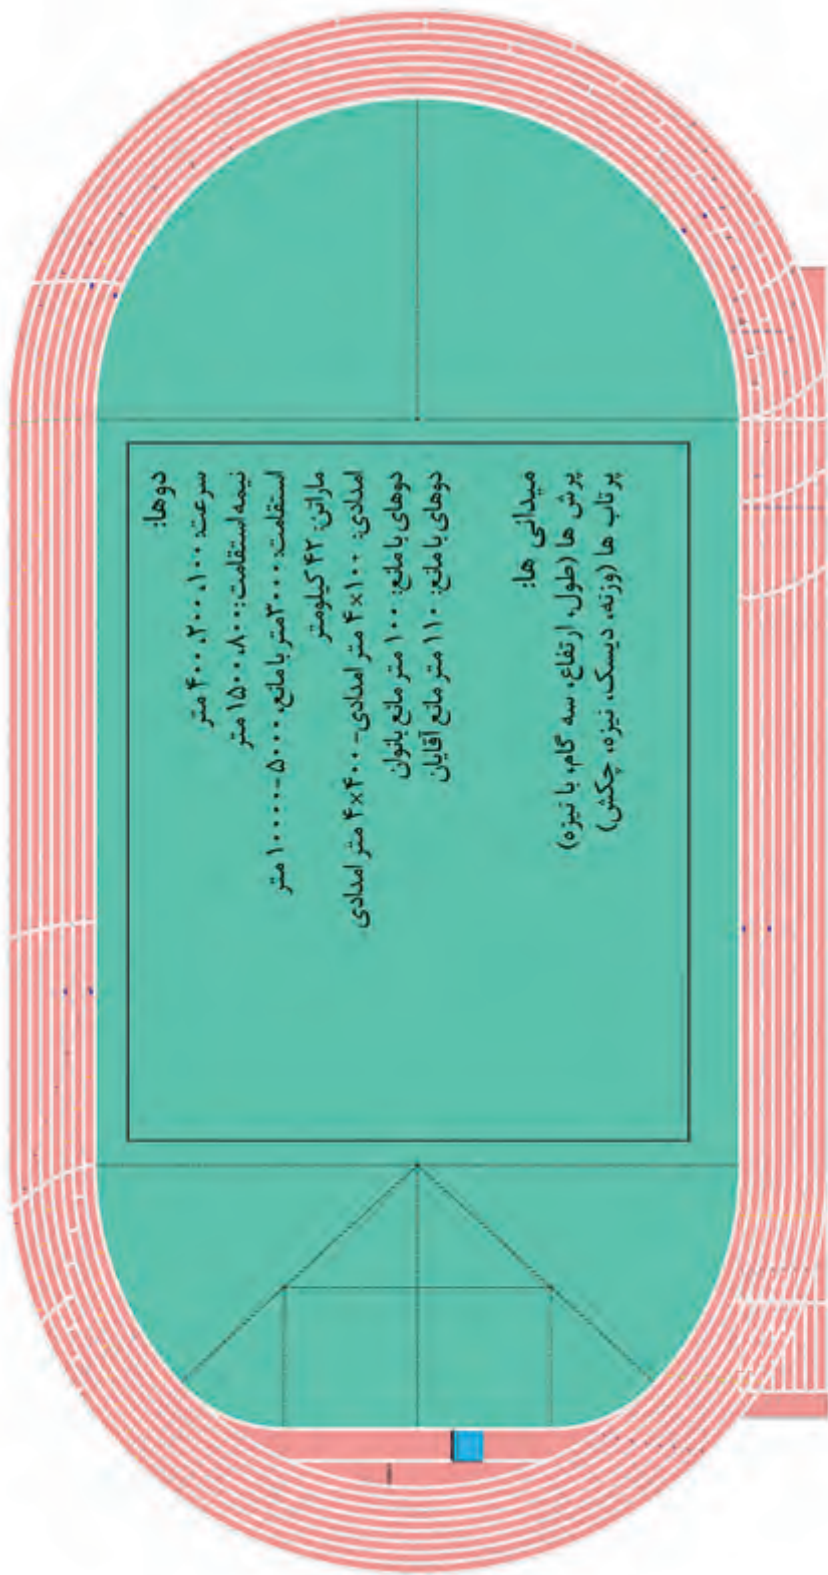 دوها:
سرعت: ۱۰۰، ۲۰۰، ۴۰۰ متر
نیمه استقامت: ۸۰۰، ۱۵۰۰ متر
استقامت: ۳۰۰۰ متر با مانع، ۵۰۰۰-۱۰۰۰۰ متر
ماراتن: ۴۲ کیلومتر
امدادی: ۱۰۰×۴ متر امدادی- ۴۰۰×۴ متر امدادی
دوهای با مانع: ۱۰۰ متر مانع بانوان
دوهای با مانع: ۱۱۰ متر مانع آقایان
میدانی ها:
پرش ها (طول، ارتفاع، سه گام، با نیزه)
پرتاب ها (وزنه، دیسک، نیزه، چکش)